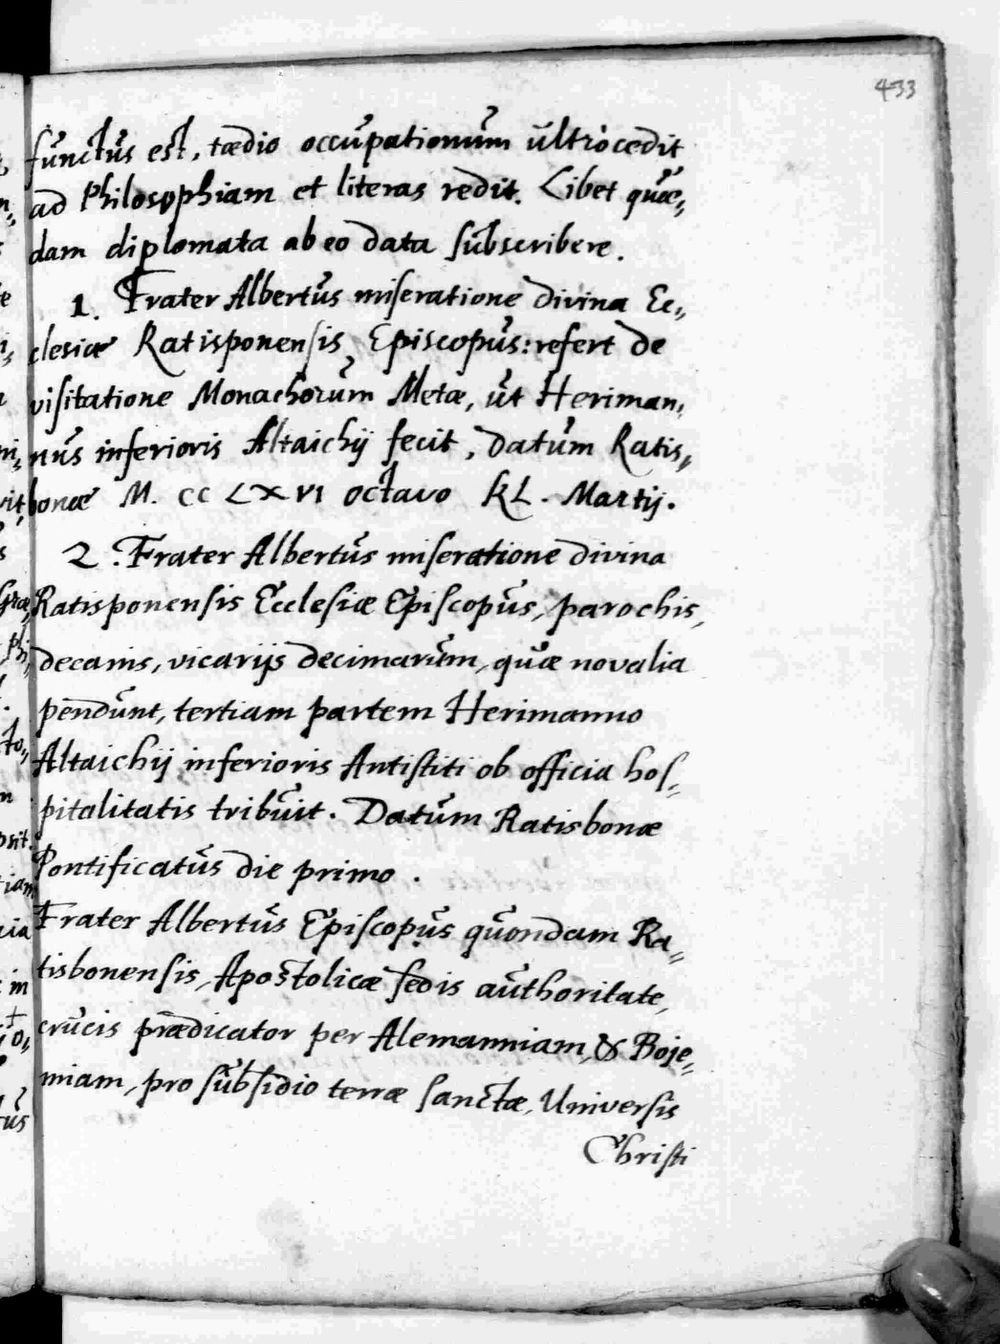 433
functus est, tædio occupationum ultrò cedit
ad Philosophiam et literas redit. Libet quæ,,
dam diplomata ab eo data subscribere.
1. Frater Albertus miseratione divina Ec,,
clesiæ Ratisponensis Episcopus: refert de
visitatione Monachorum Metæ, ut Heriman,,
nus inferioris Altaichij fecit, datum Ratis,,
bonæ M. CC LXVI octavo KL. Martij.
2. Frater Albertus miseratione divina
Ratisponensis Ecclesiæ Episcopus, parochis,
decanis, vicarijs decimarum, quæ novalia
pendunt, tertiam partem Herimanno
Altaichij inferioris Antistiti ob officia hos,,
pitalitatis tribuit. Datum Ratisbonæ
Pontificatus die primo.
Frater Albertus Episcopus quondam Ra,,
tisbonensis, Apostolicæ sedis authoritate,
crucis prædicator per Alemanniam, & Boje,,
miam, pro subsidio terræ sanctæ, Universis
Christi